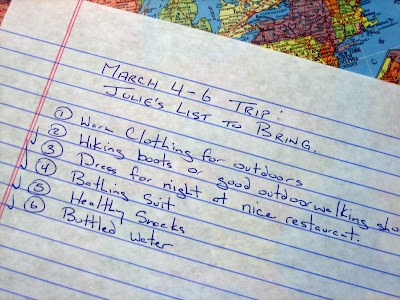 MARCH 4-6 TRIP:
JULIE'S LIST TO BRING.
① Warm Clothing for outdoors
② Hiking boots or good outdoor walking sho
③ Dress for night at nice restaurant.
④ Bathing Suit
⑤ Healthy Snacks
⑥ Bottled Water